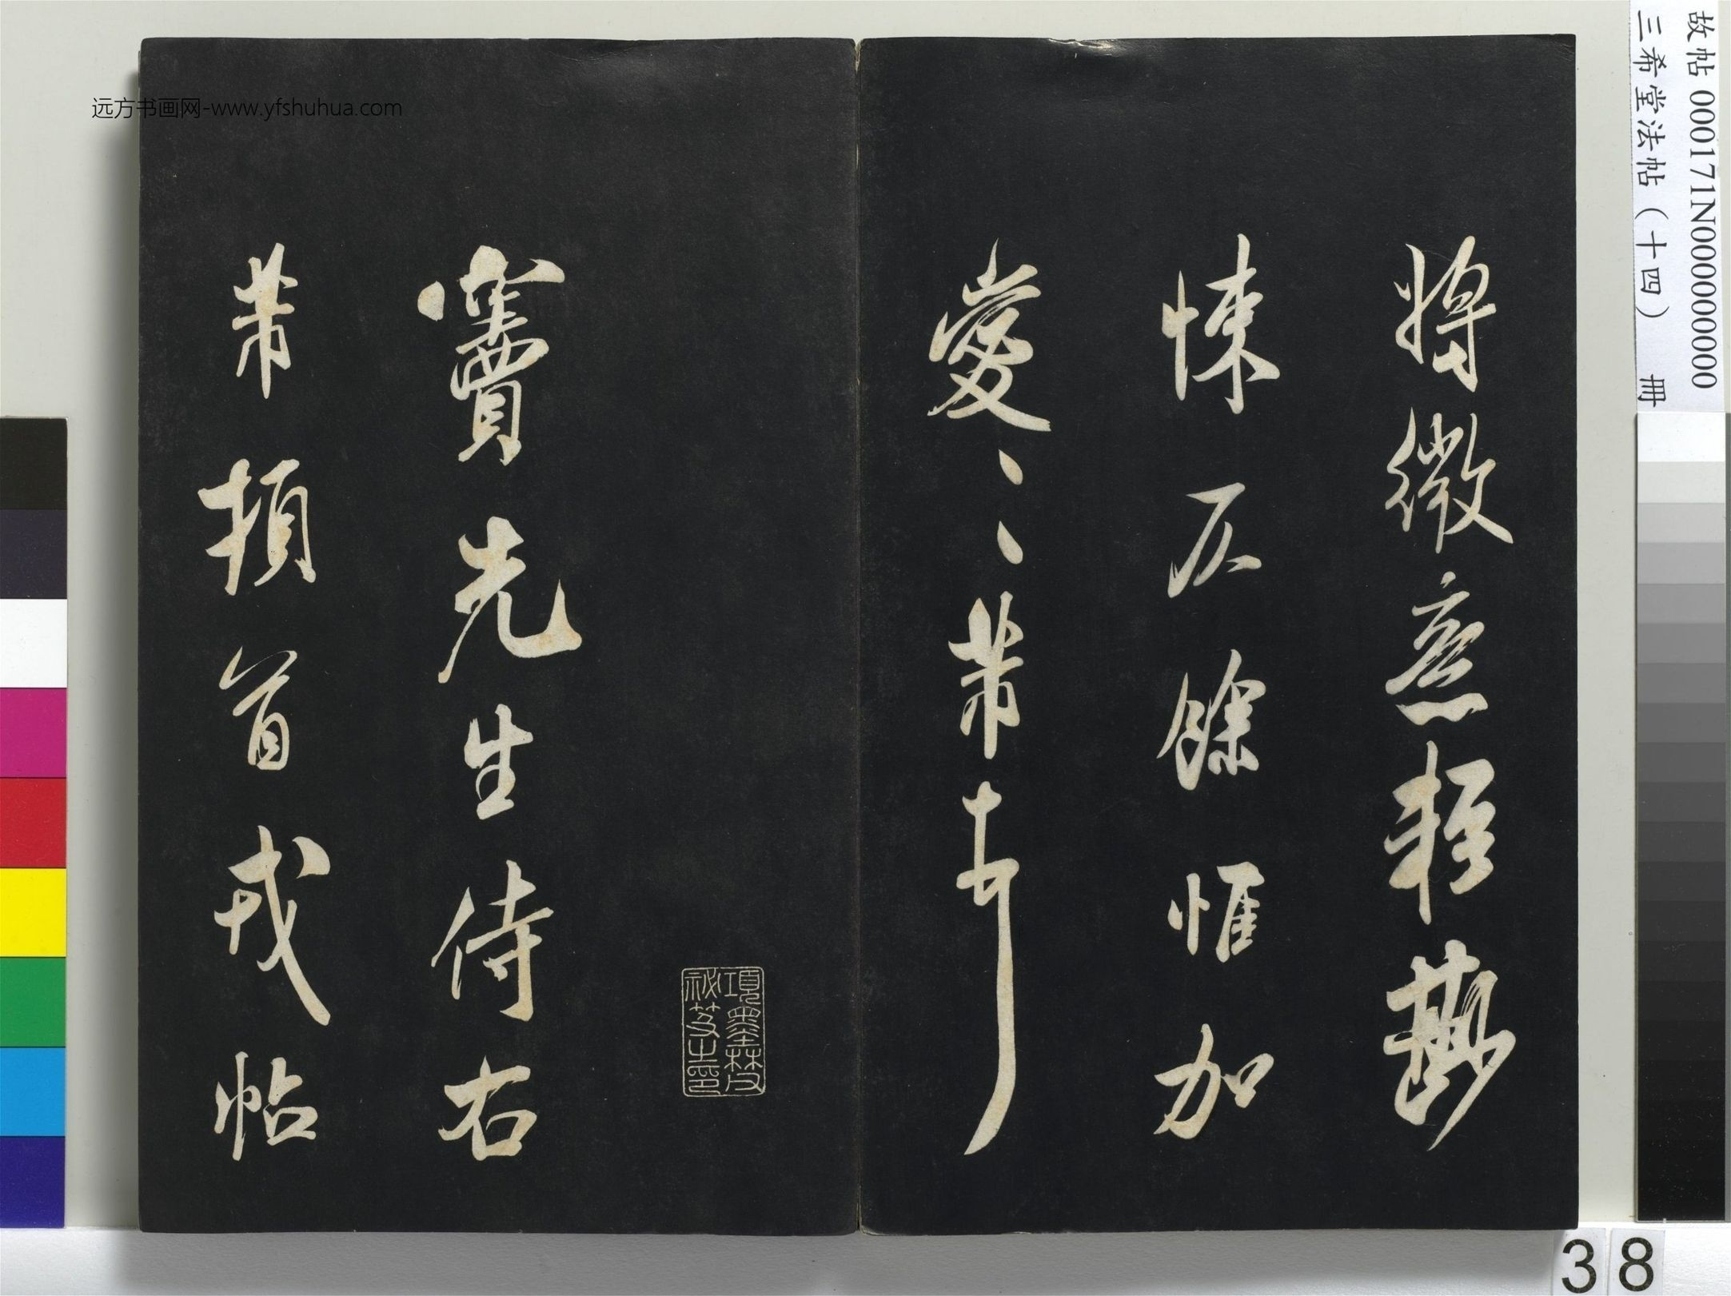 故帖 000171N000000000
三希堂法帖(十四) 冊
將微意輕尠
悚仄餘惟加
愛〻〻芾頓首
項墨林父
祕笈之印
竇先生侍右
芾頓首戎帖
远方书画网-www.yfshuhua.com
38